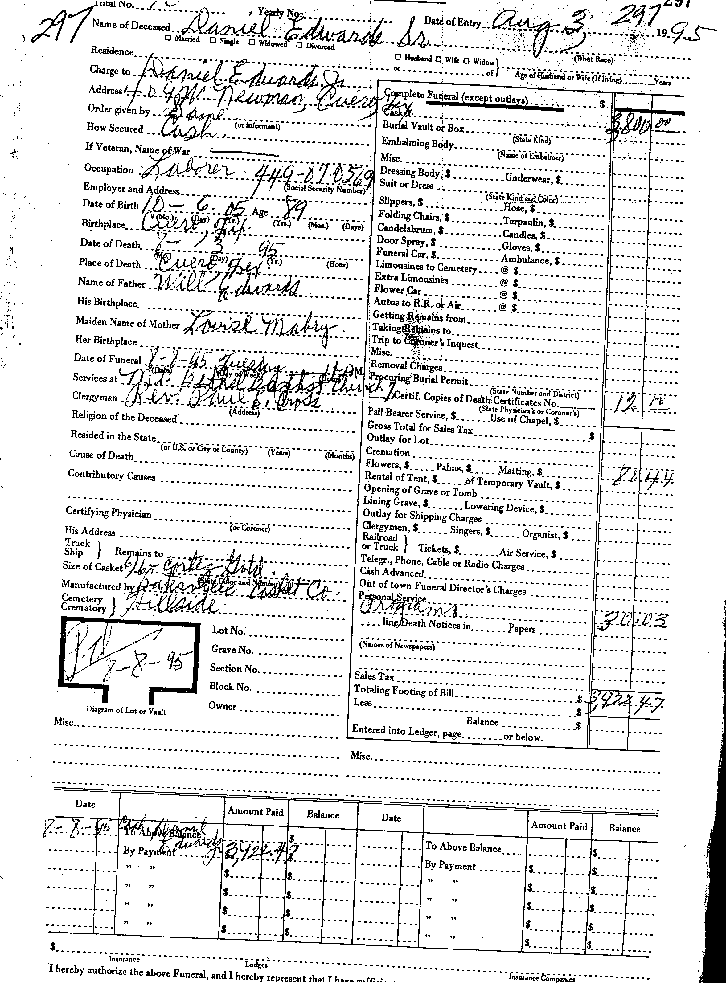 Total No. Yearly No. 297
297 Name of Deceased Daniel Edwards Sr Date of Entry Aug 3, 1995
☐ Married ☐ Single ☐ Widowed ☐ Divorced
Residence ☐ Husband ☐ Wife ☐ Widow (What Race)
Charge to Daniel Edwards Jr or of Age of Husband or Wife (if living) Years
Address W. Newman, Cuero, Tex
Order given by Same
How Secured Cash (or informant)
If Veteran, Name of War
Occupation Laborer (Social Security Number)
Employer and Address
Date of Birth 10 - 6 - 05 Age 89
Birthplace Cuero, Tex (Yrs.) (Mos.) (Days)
Date of Death 95
Place of Death Cuero, Tex (Hour)
Name of Father Will Edwards
His Birthplace
Maiden Name of Mother Louise Mabry
Her Birthplace
Date of Funeral 95 Tuesday
Services at Baptist Church
Clergyman Rev. Cross
Religion of the Deceased (Address)
Resided in the State
(or U.S. or City or County) (Years) (Months)
Cause of Death
Contributory Causes
Certifying Physician
His Address (or Coroner)
Truck Ship } Remains to
Size of Casket Cortez Gold
Manufactured by Casket Co.
Cemetery Crematory } Hillside
Pd 8-8-95
Lot No.
Grave No.
Section No.
Block No.
Owner
Diagram of Lot or Vault
Misc.
Complete Funeral (except outlays) $
Casket 3,800 00
Burial Vault or Box
Embalming Body (State Kind)
Misc. (Name of Embalmer)
Dressing Body, $ Underwear, $
Suit or Dress
(State Kind and Color)
Slippers, $ Hose, $
Folding Chairs, $ Tarpaulin, $
Candelabrum, $ Candles, $
Door Spray, $ Gloves, $
Funeral Car, $ Ambulance, $
Limousines to Cemetery @ $
Extra Limousines @ $
Flower Car @ $
Autos to R.R. or Air @ $
Getting Remains from
Taking Remains to
Trip to Coroner's Inquest
Misc.
Removal Charges
Procuring Burial Permit
(State Number and District)
Certif. Copies of Death Certificates No.
(State Physician's or Coroner's)
Pall Bearer Service, $ Use of Chapel, $
Gross Total for Sales Tax $
Outlay for Lot
Cremation
Flowers, $ Palms, $ Matting, $
Rental of Tent, $ of Temporary Vault, $
Opening of Grave or Tomb
Lining Grave, $ Lowering Device, $
Outlay for Shipping Charges
Clergymen, $ Singers, $ Organist, $
Railroad or Truck } Tickets, $ Air Service, $
Telegr., Phone, Cable or Radio Charges
Cash Advanced
Out of town Funeral Director's Charges
Personal Service
Programs 30 03
Death Notices in Papers
(Names of Newspapers)
Sales Tax
Totaling Footing of Bill $ 3,922.47
Less $
Balance $
Entered into Ledger, page or below.
Misc.
Date Amount Paid Balance Date Amount Paid Balance
8-8-95 To Above Balance $ To Above Balance $
By Payment 3,922.47 By Payment $ $
" " $ " " $ $
" " $ " " $ $
" " $ " " $ $
" " $ " " $ $
$
Insurance Lodges Insurance Companies
I hereby authorize the above Funeral, and I hereby represent that I have